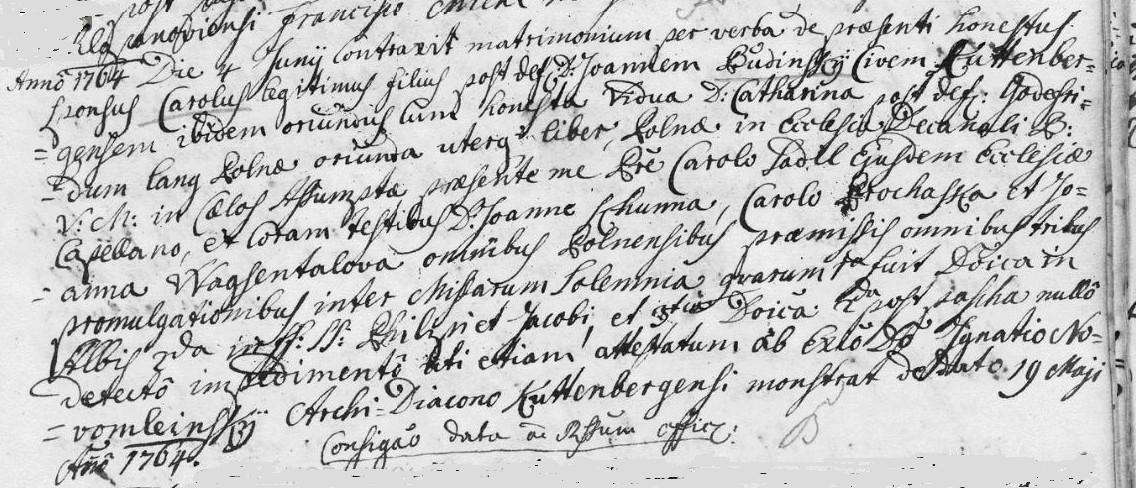 Anno 1764 Die 4 Junij contraxit matrimonium per verba de præsenti honestus
sponsus Carolus legitimus filius post def: D: Joannem Budinskÿ Civem Kuttenber=
=gensem ibidem oriundus cum honesta Vidua D: Catharina post def: Godefri=
=dum lang Polnæ oriunda uterq3 liber, Polnæ in Ecclesia Decanali B:
V: M: in Cælos Assumptæ præsente me Pre Carolo Ejusdem Ecclesiæ
Capellano, et Coram testibus D: Joanne Schunna, Carolo Prochaska et Jo=
=anna Wagsentalova omnibus Polnensibus præmissis omnibus tribus
promulgationibus inter Missarum Solemnia quarum 1a fuit Doica in
Albis 2da in ff: SS: Philippi et Jacobi, et 3tia Doica 2da post pascha nullô
detectô impedimentô uti etiam attestatum ab Exio Do Ignatio No=
=vomleinskÿ Archi=Diacono Kuttenbergensi monstrat de Dato 19 Maji
Ano 1764.
Consigão data ad Rssum offic: